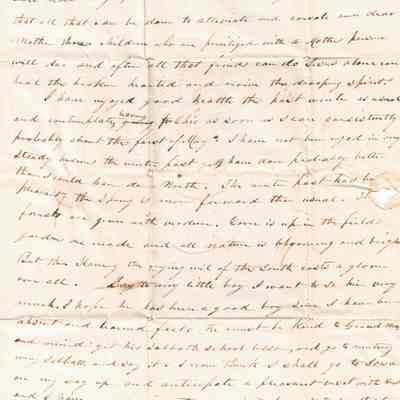 that all that can be done to alleviate and console our dear
Mother those children who are privileged with a Mother
will do and after all that friends can do Jesus alone can
heal the broken hearted and revive the drooping spirit.
I have enjoyed good health the past winter as usual
and contemplate leaving for Ohio as soon as I can consistently
probably about the first of May I have not been engaged in any
steady business the winter past yet have done probably better
than I could have done North. The winter past has been
pleasant the Spring is more forward than usual. The
forests are green with verdure. Corn is up in the fields
gardens are made and all nature is blooming and bright
But then Slavery the crying evil of the South casts a gloom
over all. Say to my little boy I want to see him very
much. I hope he has been a good boy since I have been
absent and learned fast. He must be kind to Grand Ma
and mind get his Sabbath School lesson, and go to meeting
every Sabbath and say it. I now think I shall go to Iowa
on my way up and anticipate a pleasant visit with
and